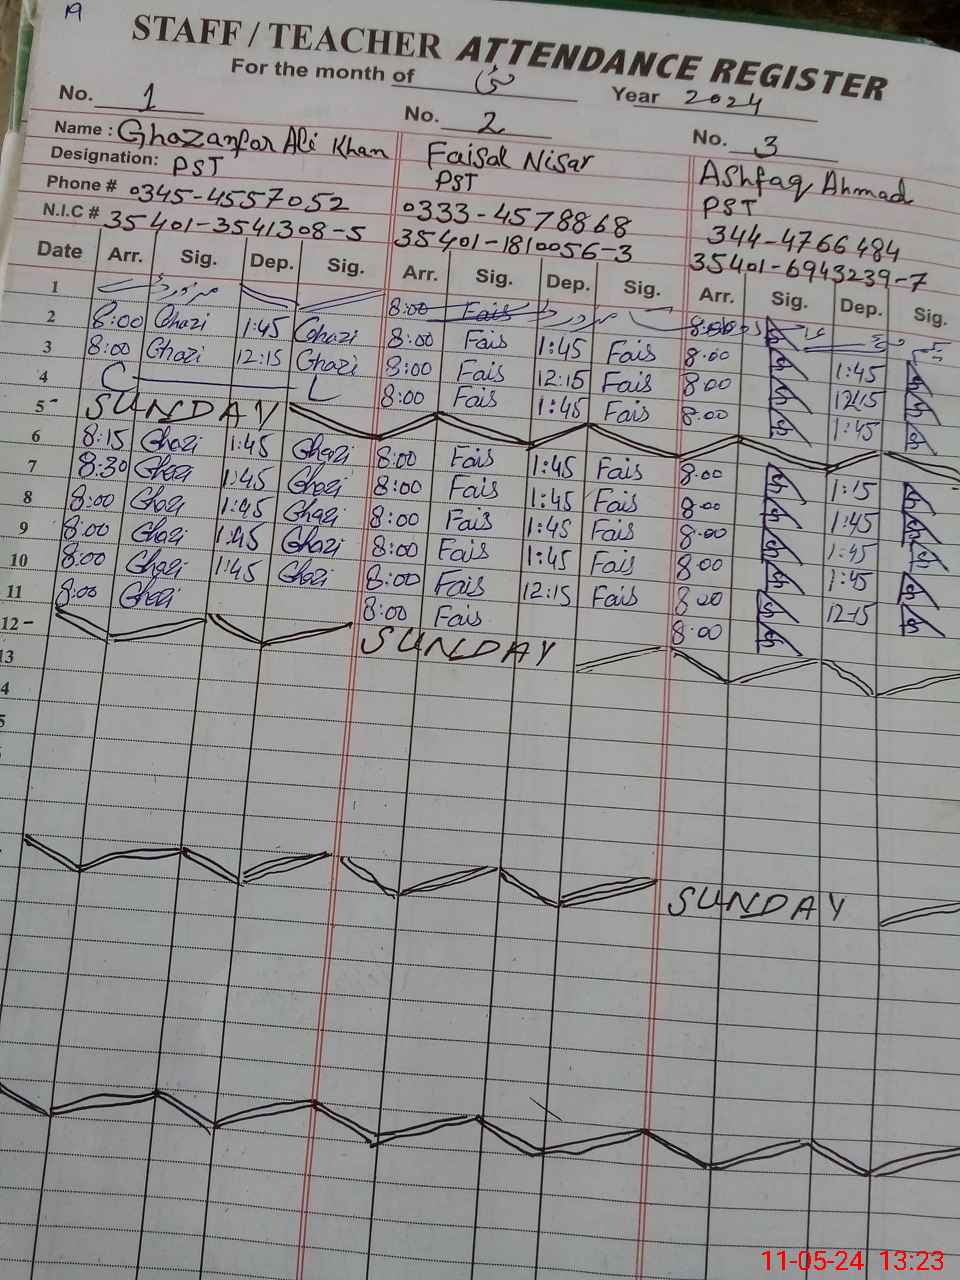 19
STAFF / TEACHER ATTENDANCE REGISTER
For the month of مئی Year 2024
No. 1 No. 2 No. 3
Name : Ghazanfar Ali Khan Faisal Nisar Ashfaq Ahmad
Designation: PST PST PST
Phone # 0345-4557052 0333-4578868 344-4766484
N.I.C # 35401-3541308-5 35401-1810056-3 35401-6943239-7
Date Arr. Sig. Dep. Sig. Arr. Sig. Dep. Sig. Arr. Sig. Dep. Sig.
1 8:00 Fais
2 8:00 Ghazi 1:45 Ghazi 8:00 Fais 1:45 Fais 8:00 1:45
3 8:00 Ghazi 12:15 Ghazi 8:00 Fais 12:15 Fais 8:00 12:15
4 C L 8:00 Fais 1:45 Fais 8:00 1:45
5- SUNDAY
6 8:15 Ghazi 1:45 Ghazi 8:00 Fais 1:45 Fais 8:00 1:15
7 8:30 Ghazi 1:45 Ghazi 8:00 Fais 1:45 Fais 8:00 1:45
8 8:00 Ghazi 1:45 Ghazi 8:00 Fais 1:45 Fais 8:00 1:45
9 8:00 Ghazi 1:45 Ghazi 8:00 Fais 1:45 Fais 8:00 1:45
10 8:00 Ghazi 1:45 Ghazi 8:00 Fais 12:15 Fais 8:00 12:15
11 8:00 Ghazi 8:00 Fais 8:00
12- SUNDAY
13
4
5
SUNDAY
11-05-24 13:23